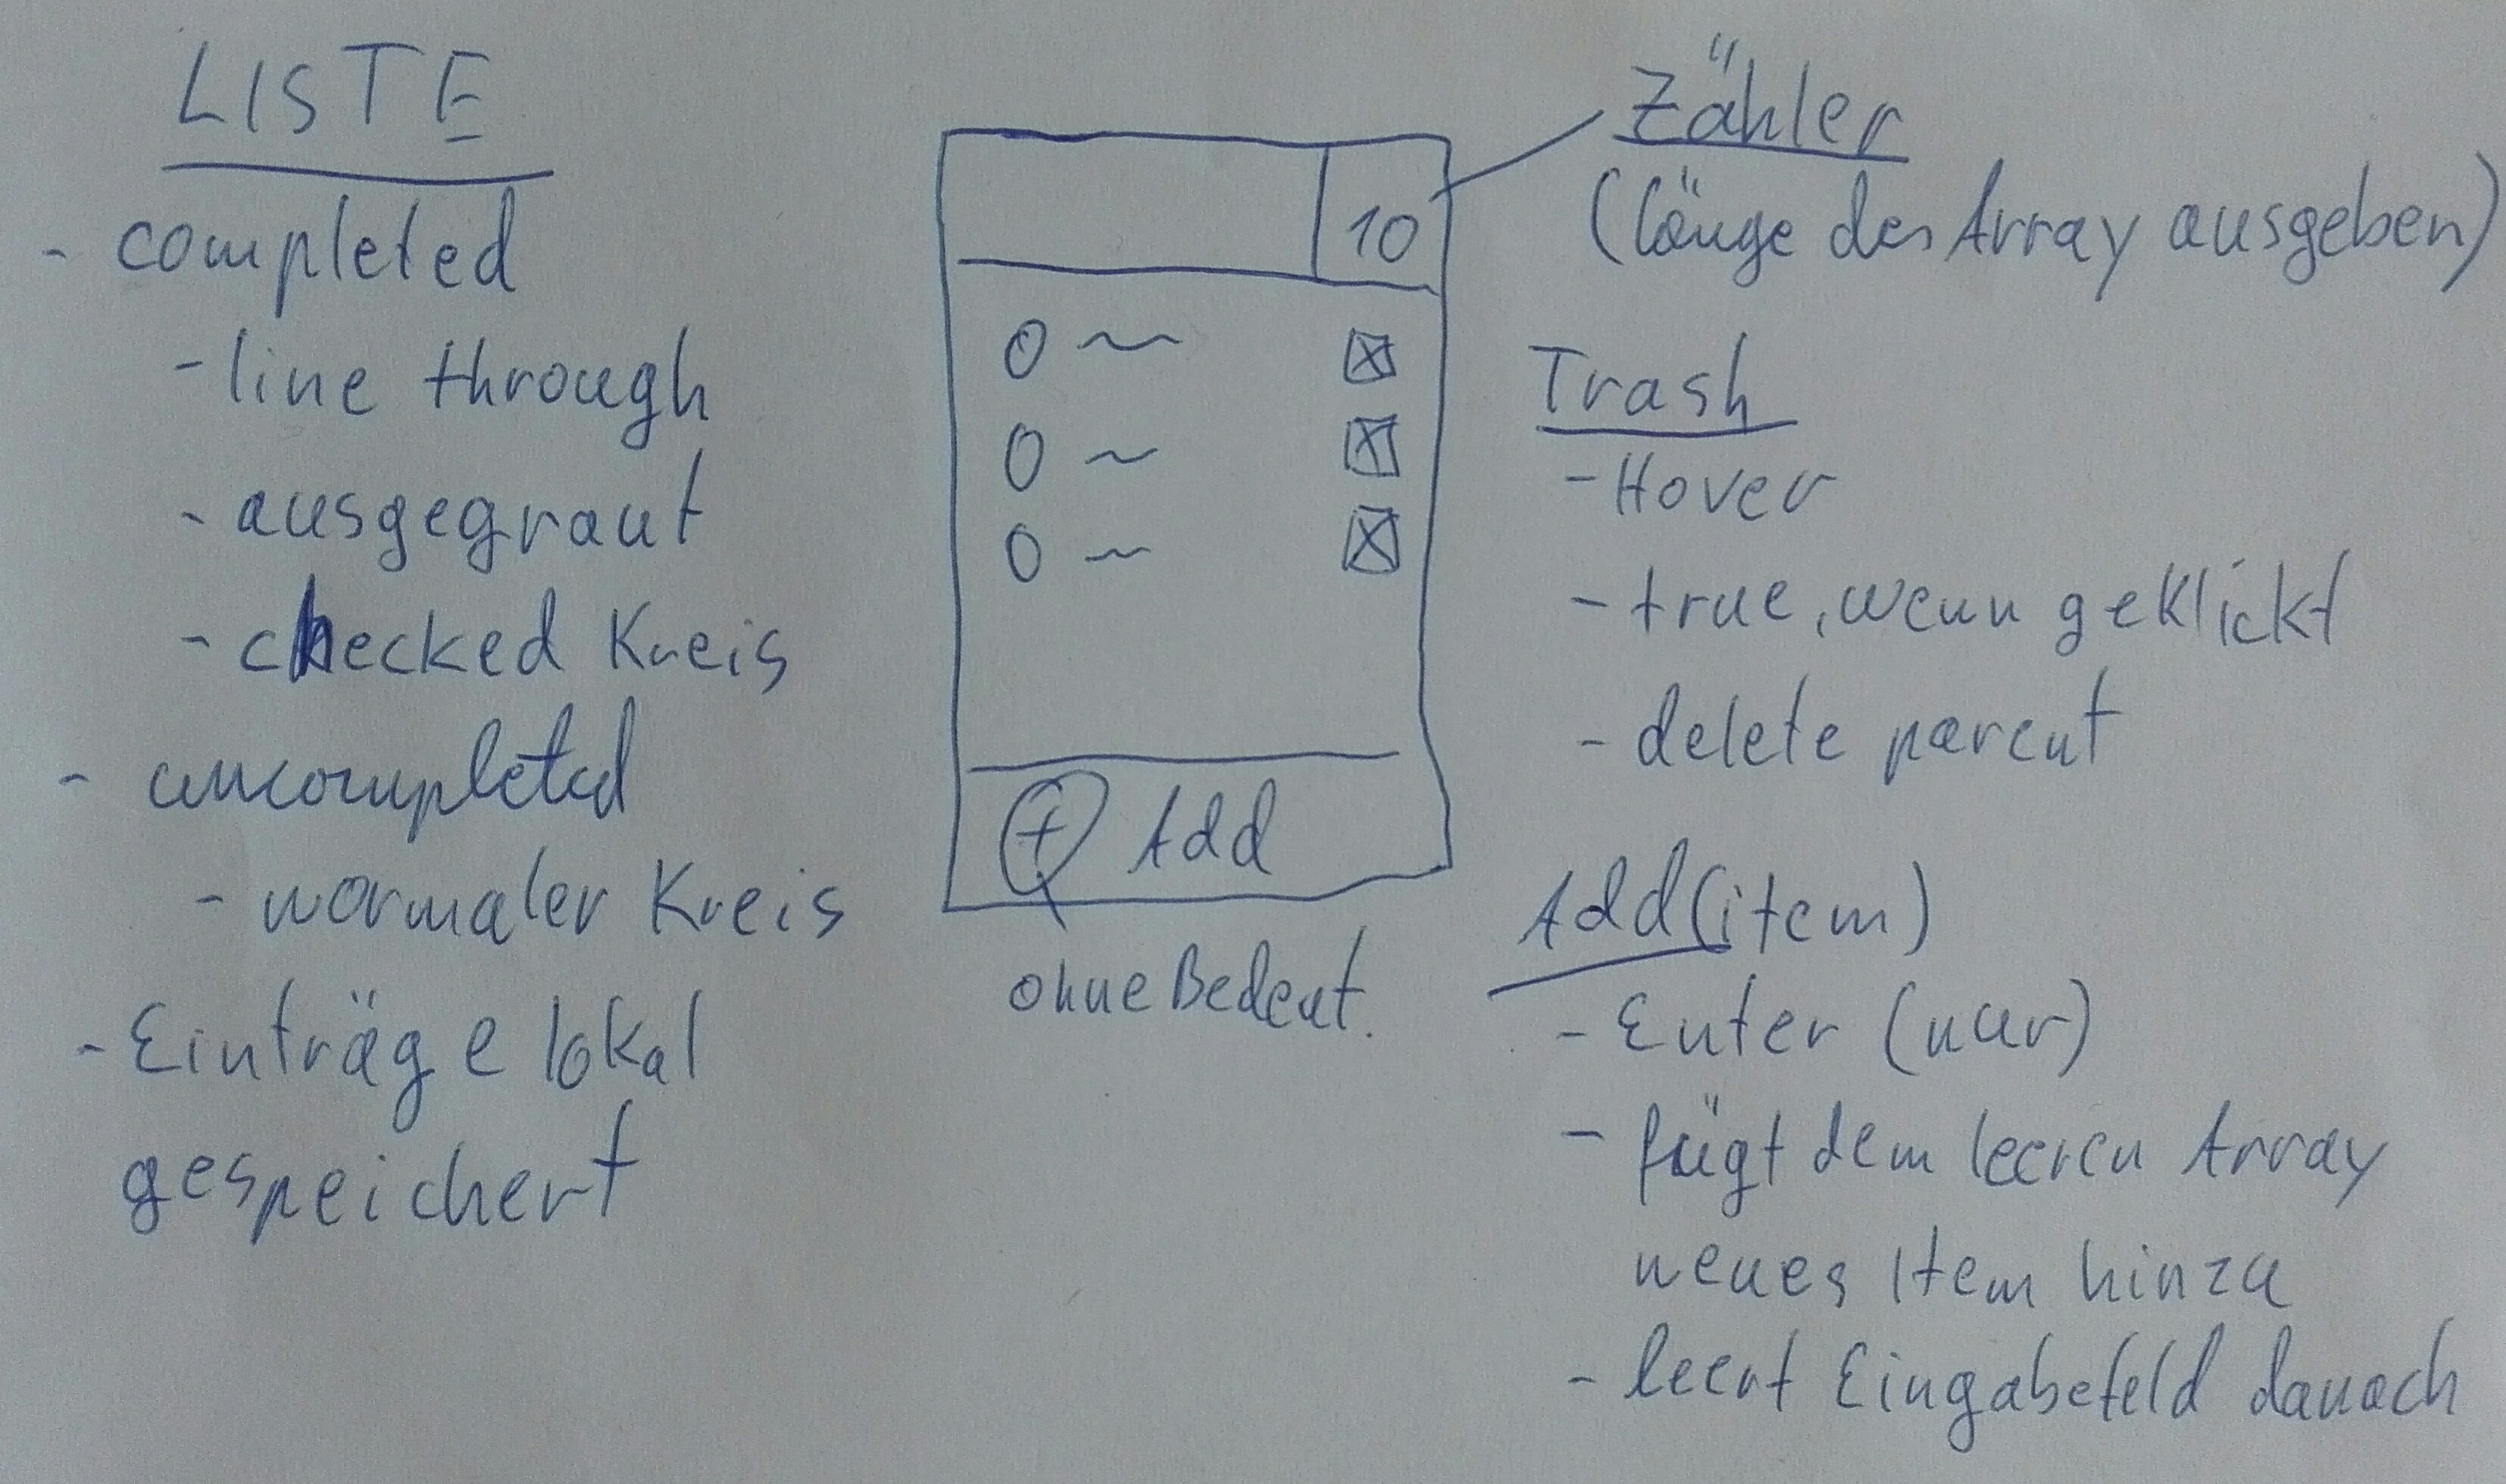 LISTE
- completed
- line through
- ausgegraut
- checked Kreis
- uncompleted
- normaler Kreis
- Einträge lokal
gespeichert
10
+ Add
ohne Bedeut.
Zähler
(länge des Array ausgeben)
Trash
- Hover
- true, wenn geklickt
- delete parent
Add(item)
- Enter (nur)
- fügt dem leeren Array
neues Item hinzu
- leert Eingabefeld danach